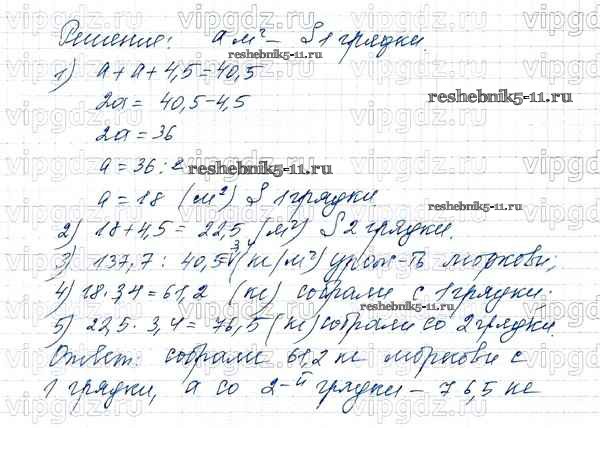 Решение: a м² – S 1 грядки.
1) a + a + 4,5 = 40,5
2a = 40,5 – 4,5
2a = 36
a = 36 : 2
a = 18 (м²) S 1 грядки
2) 18 + 4,5 = 22,5 (м²) S 2 грядки.
3) 137,7 : 40,5 = 3,4 (кг/м²) урож-ть моркови;
4) 18 · 3,4 = 61,2 (кг) собрали с 1 грядки.
5) 22,5 · 3,4 = 76,5 (кг) собрали со 2 грядки.
Ответ: собрали 61,2 кг моркови с
1 грядки, а со 2-й грядки – 76,5 кг
reshebnik5-11.ru
reshebnik5-11.ru
reshebnik5-11.ru
reshebnik5-11.ru
reshebnik5-11.ru
reshebnik5-11.ru
vipgdz.ru